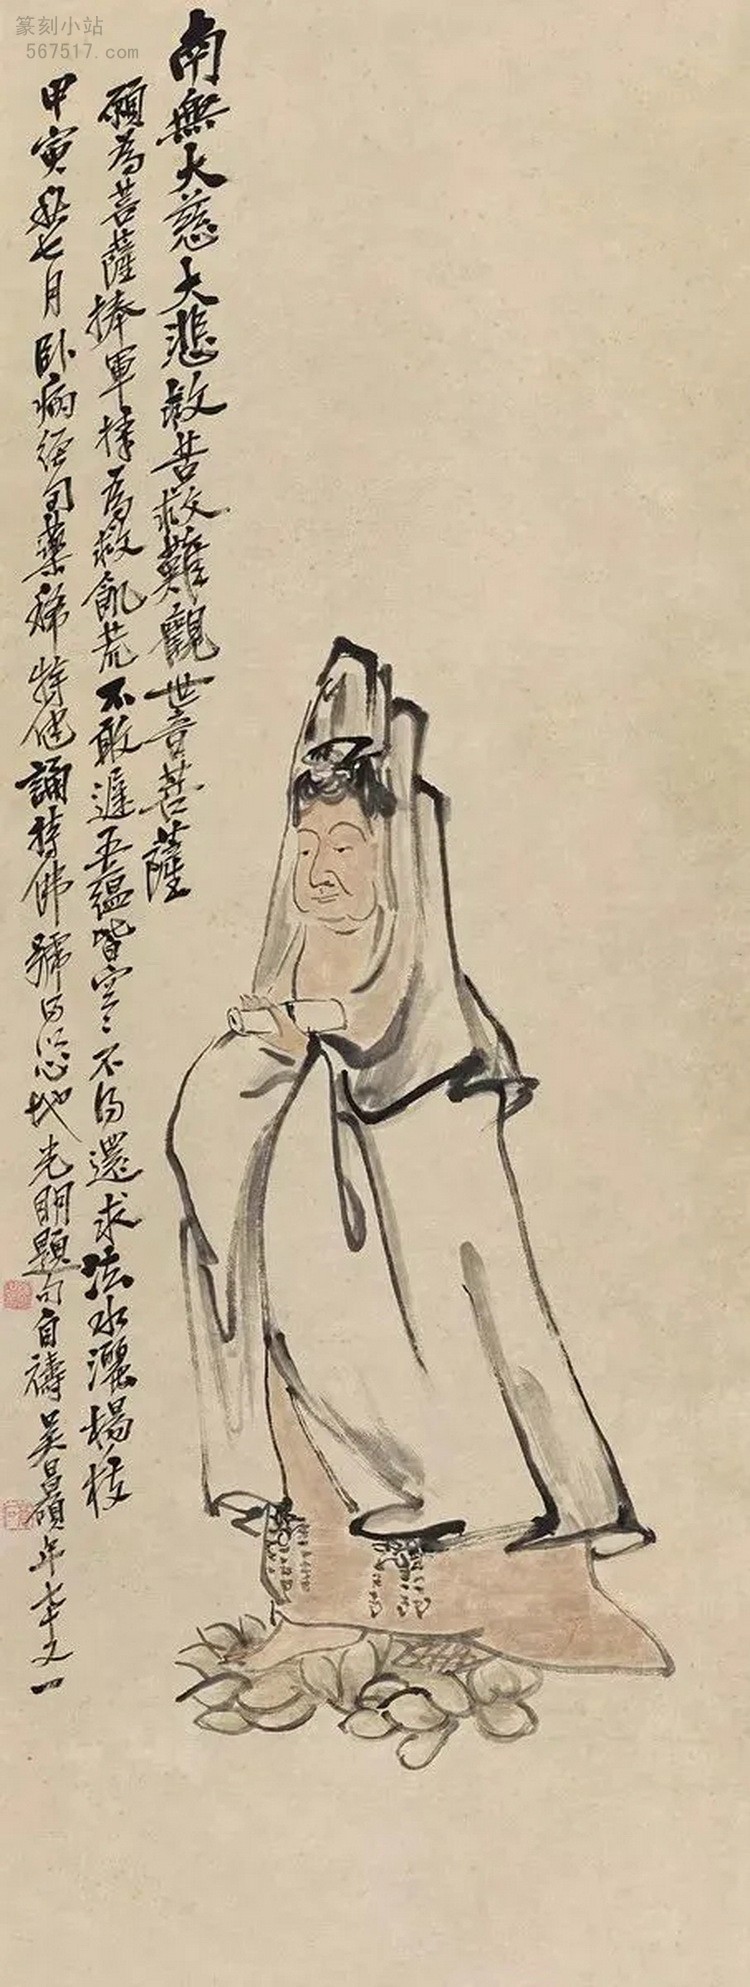 篆刻小站
567517.com
南無大慈大悲救苦救難觀世音菩薩
願為菩薩捧軍持為救飢荒不敢遲五蘊皆空空不得還求法水灑楊枝
甲寅 七月臥病經旬藥 特 誦持佛號 心地光明題句自禱吳昌碩年七十又一